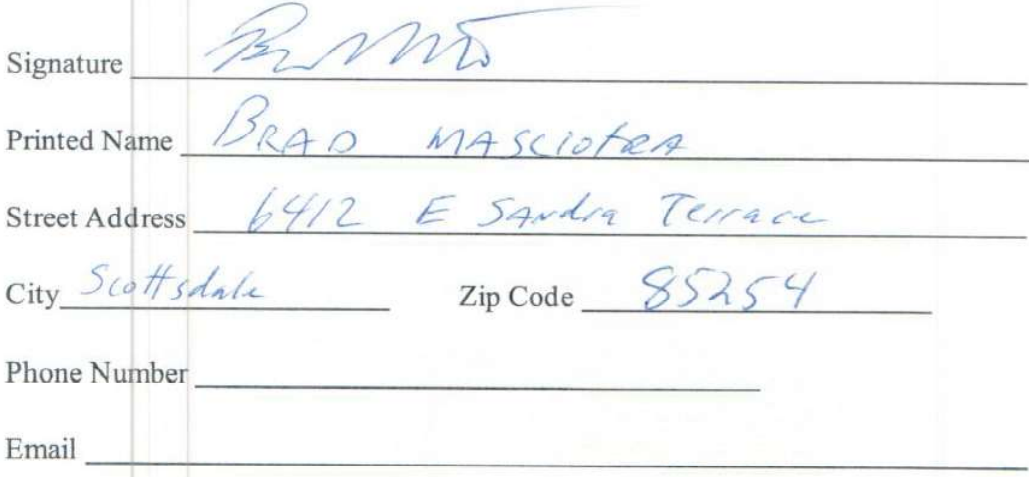 Signature
Printed Name BRAD MASCIOTRA
Street Address 6412 E Sandra Terrace
City Scottsdale Zip Code 85254
Phone Number
Email